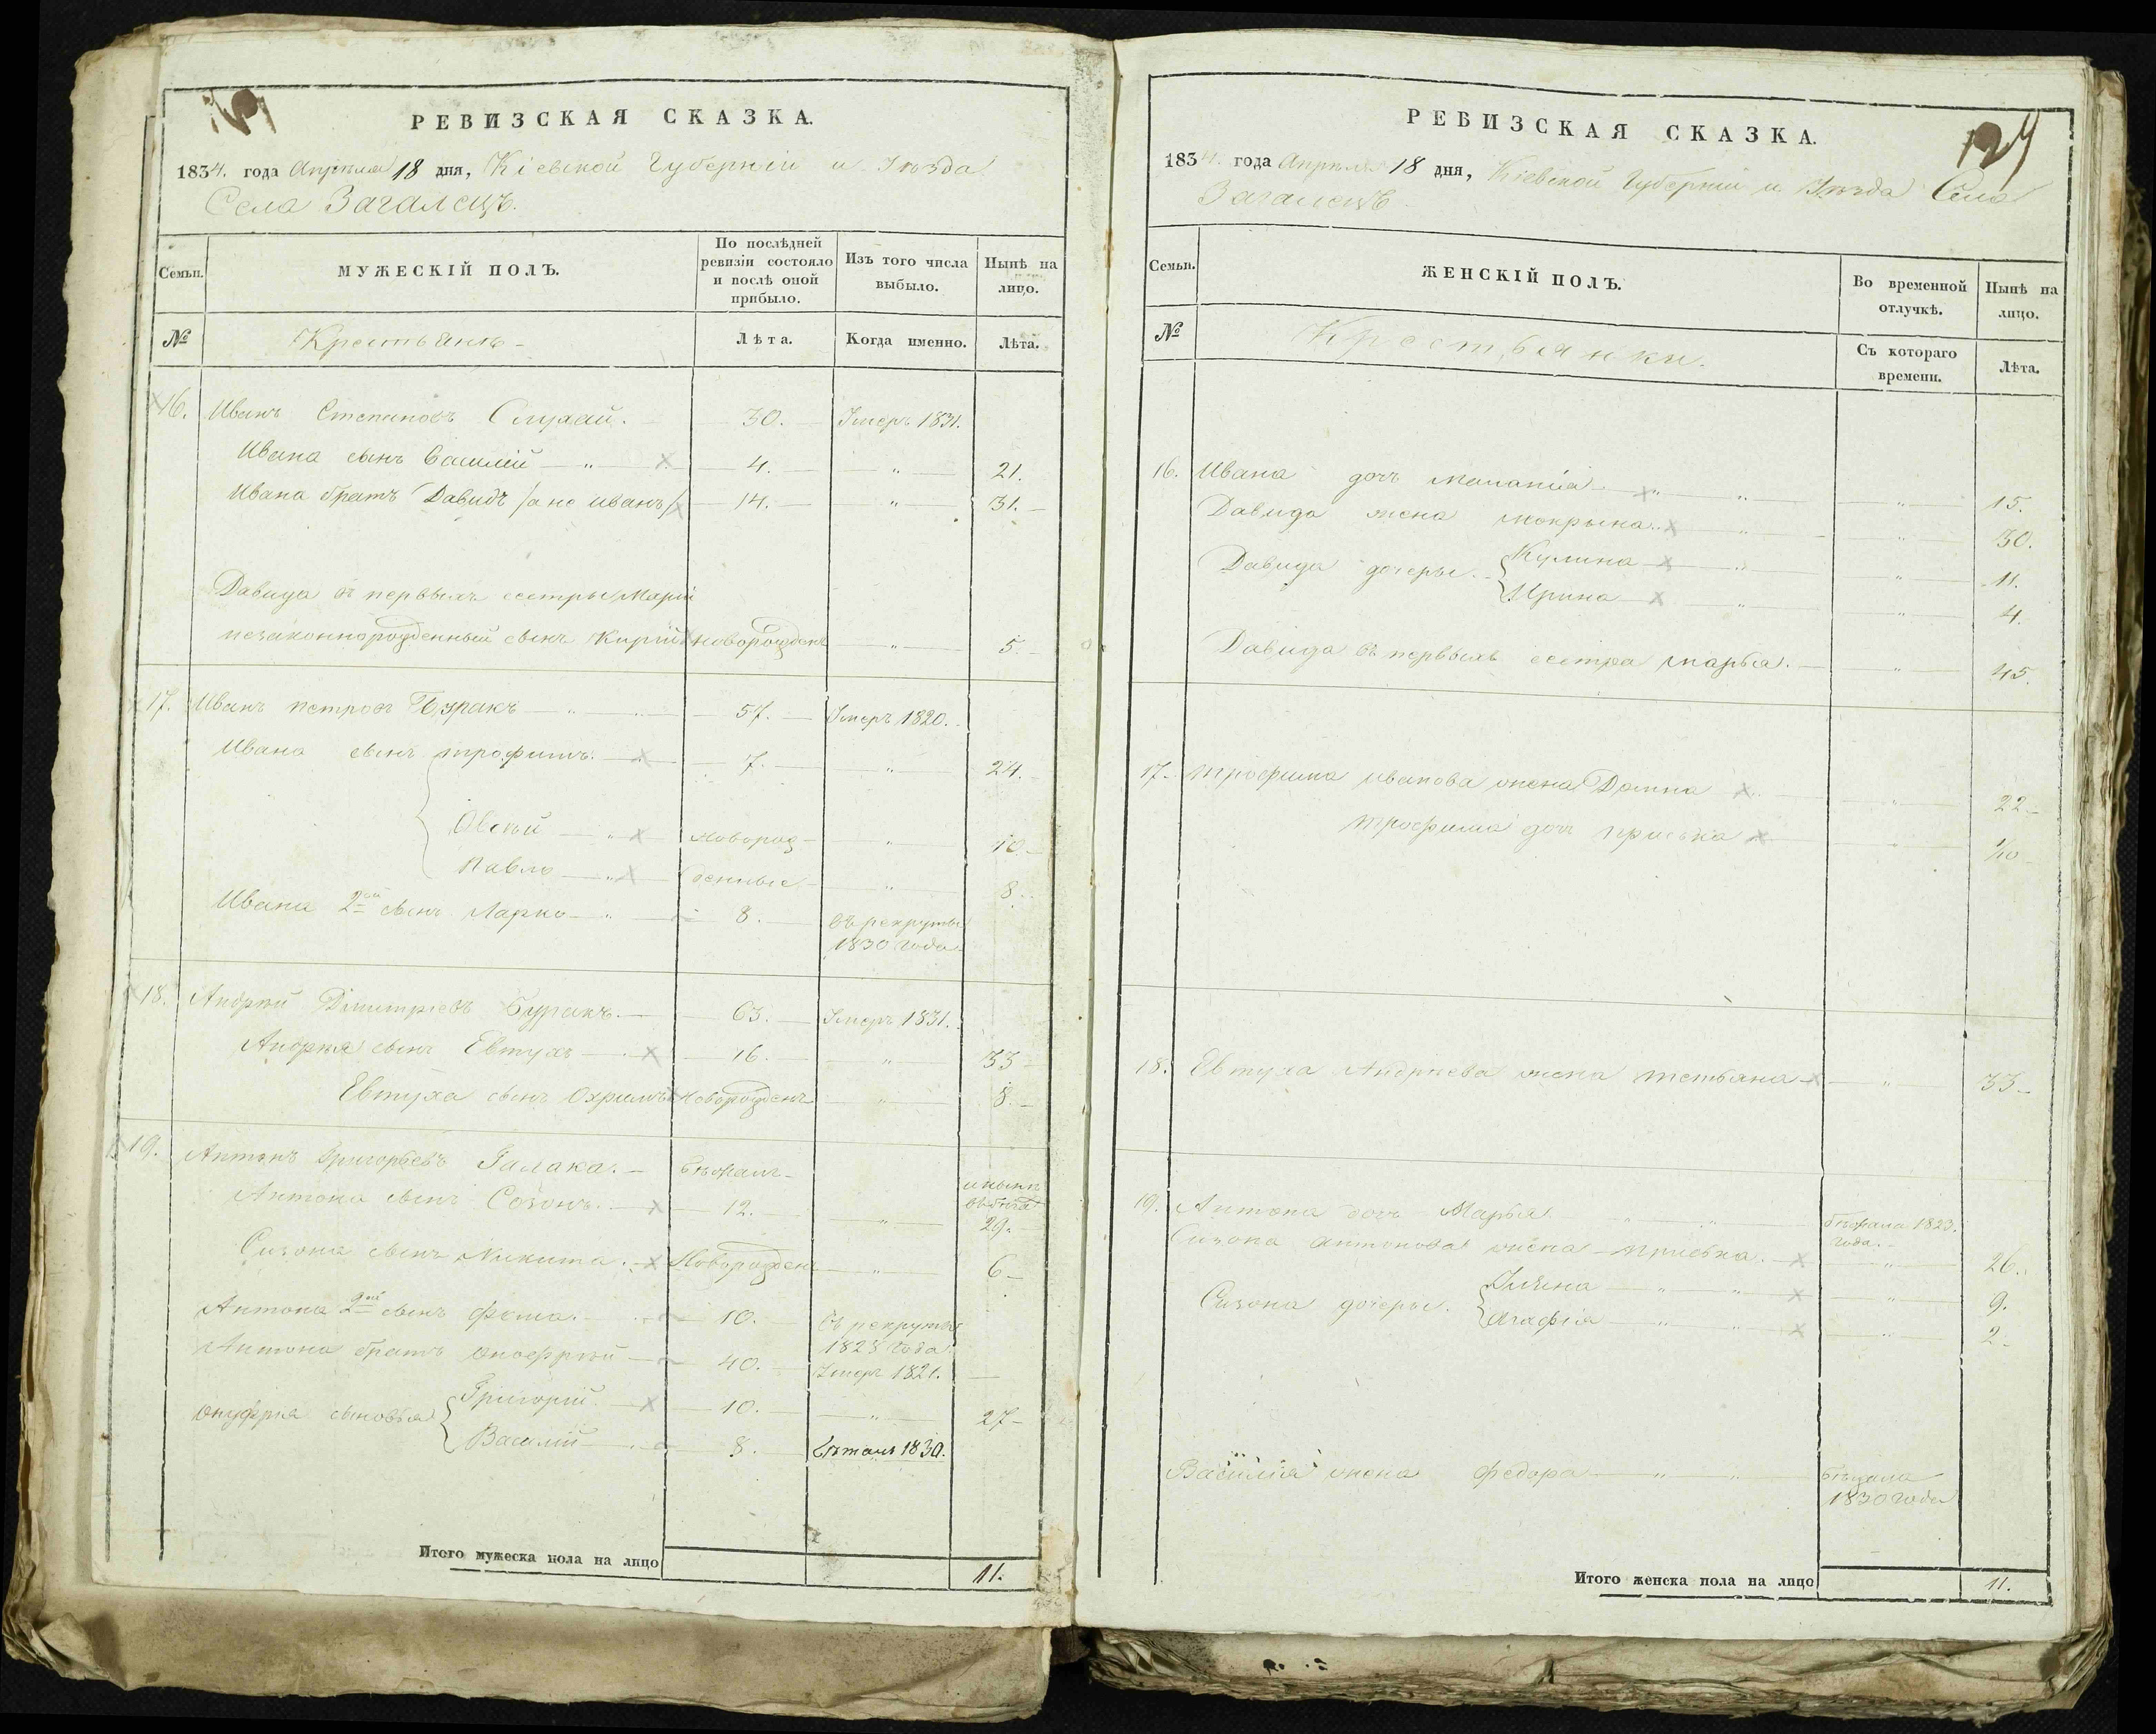 РЕВИЗСКАЯ СКАЗКА.
1834. года Апрѣля 18 дня, Кіевской Губерніи и Уѣзда
Села Загалецъ.
Семьи.
МУЖЕСКІЙ ПОЛЪ.
По послѣдней ревизіи состояло и послѣ оной прибыло.
Изъ того числа выбыло.
Нынѣ на лицо.
№
Крестьянѣ
Лѣта.
Когда именно.
Лѣта.
16. Иванъ Степановъ Слухай. 30. Умеръ 1831.
Ивана сынъ Василій — „ 4. „ 21.
Ивана братъ Давидъ /а не иванъ/ 14. „ 31.
Давида въ первыхъ сестры Маріи
незаконнорожденный сынъ Кирій новорожденъ „ 5.
17. Иванъ петровъ Буракъ — „ 57. Умеръ 1820.
Ивана сынъ трофимъ. 7. „ 24.
Овсѣй — „ новорож- „ 10.
Павлъ — „ денные „ 8.
Ивана 2ой сынъ Ларко — „ 8. въ рекруты
1830 года
18. Андрѣй Дмитріевъ Буракъ. 63. Умеръ 1831.
Андрѣя сынъ Евтухъ — 16. „ 33
Евтуха сынъ Охримъ Новорожденъ „ 8.
19. Антонъ Григорьевъ Галака. — бѣжалъ
Антона сынъ Созонъ. — 12. „ 29.
Сизона сынъ Никита. Новорожденъ „ 6
Антона 2ой сынъ фома. 10. въ рекруты
1828 года
Антона братъ оноефрѣй — 40. Умеръ 1821. —
онуфрія сыновья Григорій 10. „ 27
Василій 8. 1830.
Итого мужеска пола на лицо 11.
РЕВИЗСКАЯ СКАЗКА.
124
1834. года Апрѣля 18 дня, Кіевской Губерніи и Уѣзда Села
Загалецъ
Семьи.
ЖЕНСКІЙ ПОЛЪ.
Во временной отлучкѣ.
Нынѣ на лицо.
№
Крестьянки.
Съ котораго времени.
Лѣта.
16. Ивана дочь Меланія „ „ „ 15.
Давида жена мокрына. „ „ 30.
Давида дочеры. Кулина „ „ 11.
Ирина „ „ 4.
Давида въ первыхъ сестра марья. „ 45.
17. трофима иванова жена Домна „ 22.
трофима дочь приська „ 1/10
18. Евтуха Андрѣева жена тетьяна „ 33
19. Антона дочь Марья „ „ бѣжала 1823.
года.
Сизона антонова жена приська. „ 26.
Сизона дочеры. Ульяна „ „ „ 9.
Агафія „ „ „ 2
Василія жена федора „ „ бѣжала
1830 года
Итого женска пола на лицо 11.